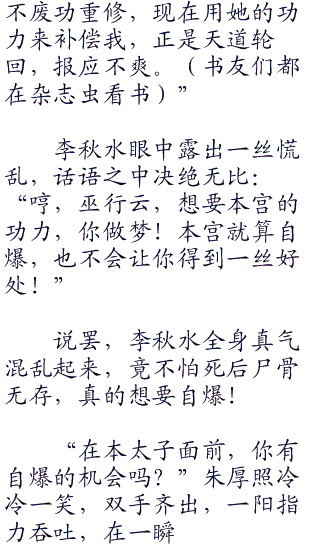 不废功重修，现在用她的功
力来补偿我，正是天道轮
回，报应不爽。（书友们都
在杂志虫看书）”
李秋水眼中露出一丝慌
乱，话语之中决绝无比：
“哼，巫行云，想要本宫的
功力，你做梦！本宫就算自
爆，也不会让你得到一丝好
处！”
说罢，李秋水全身真气
混乱起来，竟不怕死后尸骨
无存，真的想要自爆！
“在本太子面前，你有
自爆的机会吗？”朱厚照冷
冷一笑，双手齐出，一阳指
力吞吐，在一瞬